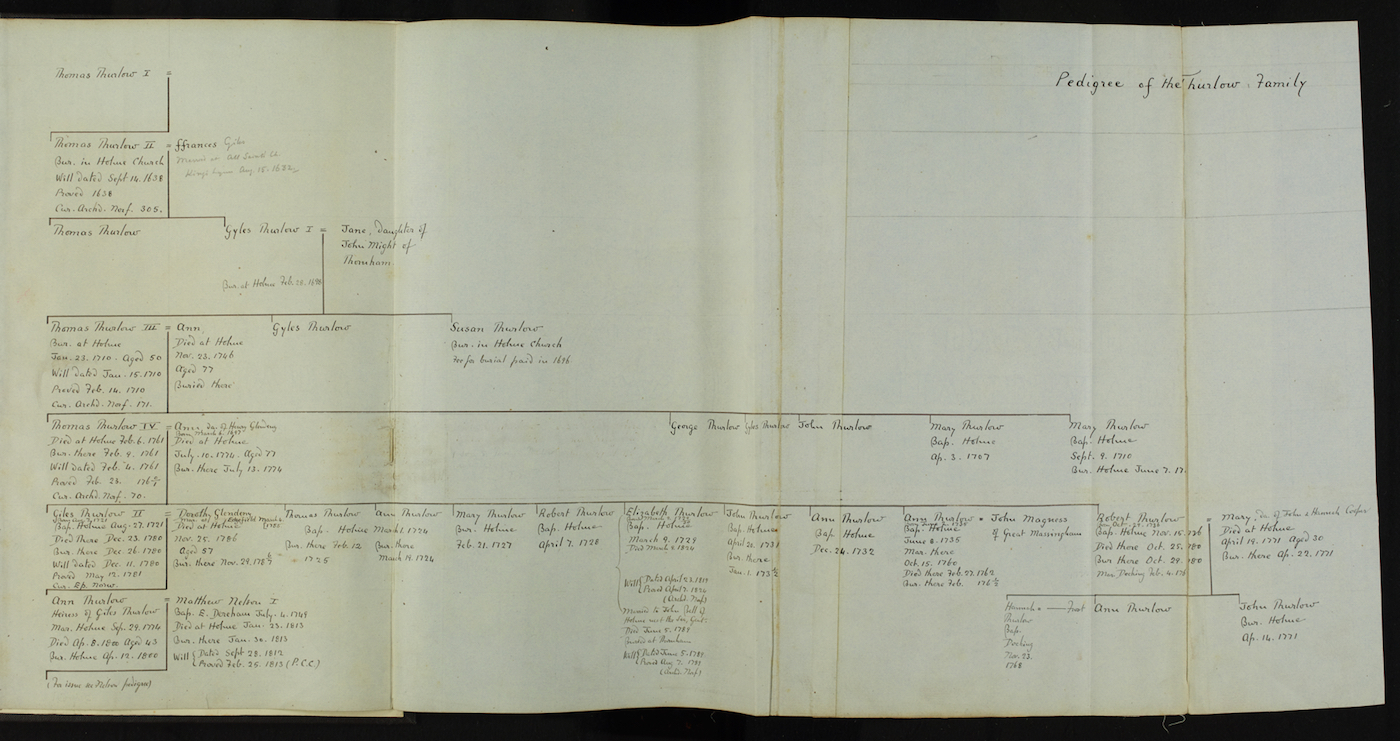 Pedigree of the Thurlow Family
Thomas Thurlow I =
Thomas Thurlow II = ffrances Giles
Bur. in Holme Church
Will dated Sept 14. 1638
Proved 1638
Cur. Archd. Norf. 305.
Married at All Saints
Aug. 15. 1632
Thomas Thurlow
Gyles Thurlow I =
Jane, daughter of
John Might of
Thornham
Bur. at Holme Feb. 25. 1698
Thomas Thurlow III =
Bur. at Holme
Jan. 23. 1710. Aged 50
Will dated Jan. 15. 1710
Proved Feb. 14. 1710
Cur. Archd. Norf. 171.
Ann,
Died at Holme
Nov. 23. 1746
Aged 77
Buried there
Gyles Thurlow
Susan Thurlow
Bur. in Holme Church
Fee for burial paid in 1696
Thomas Thurlow IV =
Died at Holme Feb. 6. 1761
Bur. there Feb. 9. 1761
Will dated Feb. 4. 1761
Proved Feb. 23.
Cur. Archd. Norf. 70.
Ann dau. of Henry Glendeny
Died at Holme
July. 10. 1774. Aged 77
Bur. there July 13. 1774
George Thurlow
Gyles Thurlow
John Thurlow
Mary Thurlow
Bap. Holme
Ap. 3. 1707
Mary Thurlow
Bap. Holme
Sept. 9. 1710
Bur. Holme June 7. 17
Giles Thurlow II =
Bap. Holme Aug. 27. 1721
Died There Dec. 23. 1780
Bur. there Dec. 26. 1780
Will dated Dec. 11. 1780
Proved May 12. 1781
Cur. Ep. Norw.
Dorothy Glendeny
Died at Holme
Nov. 25. 1786
Aged 57
Bur. there Nov. 29. 1786
Thomas Thurlow
Bap. Holme
Bur. there Feb. 12
1725
Ann Thurlow
March 1 1724
Bur. there
March 19. 1724
Mary Thurlow
Bur. Holme
Feb. 21. 1727
Robert Thurlow
Bap. Holme
April 7. 1728
Elizabeth Thurlow
Bap. Holme
March 9. 1729
Will { Dated April 23. 1819
(Archd. Norf)
Holme next the Sea, Gent.
Died June 5. 1789
Will { Dated June 5. 1789
Proved Aug 7. 1789
(Archd. Norf)
John Thurlow
Bap. Holme
Bur. there
Jan. 1. 173½
Ann Thurlow
Bap Holme
Dec. 24. 1732
Ann Thurlow =
Bap. Holme
June 8. 1735
Mar. there
Oct. 15. 1760
Died there Feb. 27. 1762
Bur. there Feb.
John Magness
of Great Massingham
Robert Thurlow =
Bap. Holme Nov. 15.
Died there Oct. 25. 1780
Bur there Oct. 29. 1780
Mary dau. of John & Hannah Cooper
Died at Holme
April 19. 1771 Aged 30
Bur. there Ap. 22. 1771
Ann Thurlow =
Heiress of Giles Thurlow
Mar. Holme Sep. 29. 1774
Died Ap. 8. 1800 Aged 43
Bur. Holme Ap. 12. 1800
Matthew Nelson I
Bap. E. Dereham July. 4. 1749
Died at Holme Jan. 23. 1813
Bur. there Jan. 30. 1813
Will { Dated Sept 28. 1812
Proved Feb. 25. 1813 (P.C.C.)
(For issue see Nelson pedigree)
Hannah = Frost
Thurlow
Bap.
Docking
Nov. 23.
1768
Ann Thurlow
John Thurlow
Bur. Holme
Ap. 14. 1771